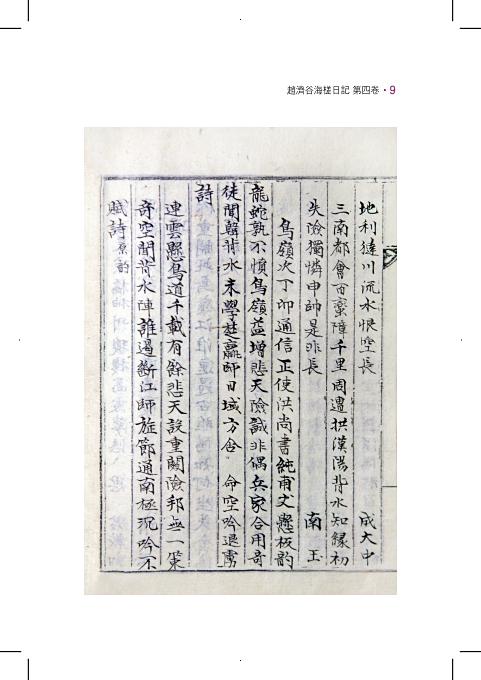 趙濟谷海槎日記 第四卷 • 9
地利㺚川流水恨空長 成大中
三南都會百蠻障千里周遭拱漢陽背水知緣初
失險獨憐申帥是非長 南玉
鳥嶺次丁卯通信正使洪尚書純甫丈懸板韵
龍蛇孰不憤鳥嶺益增悲天險誠非偶兵家合用奇
徒聞韓背水未學趙羸師日域方含命空吟退虜
詩
連雲懸鳥道千載有餘悲天設重關險邦無一策
奇空聞背水陣誰遏斷江師旋節通南極沉吟不
賦詩 原韵